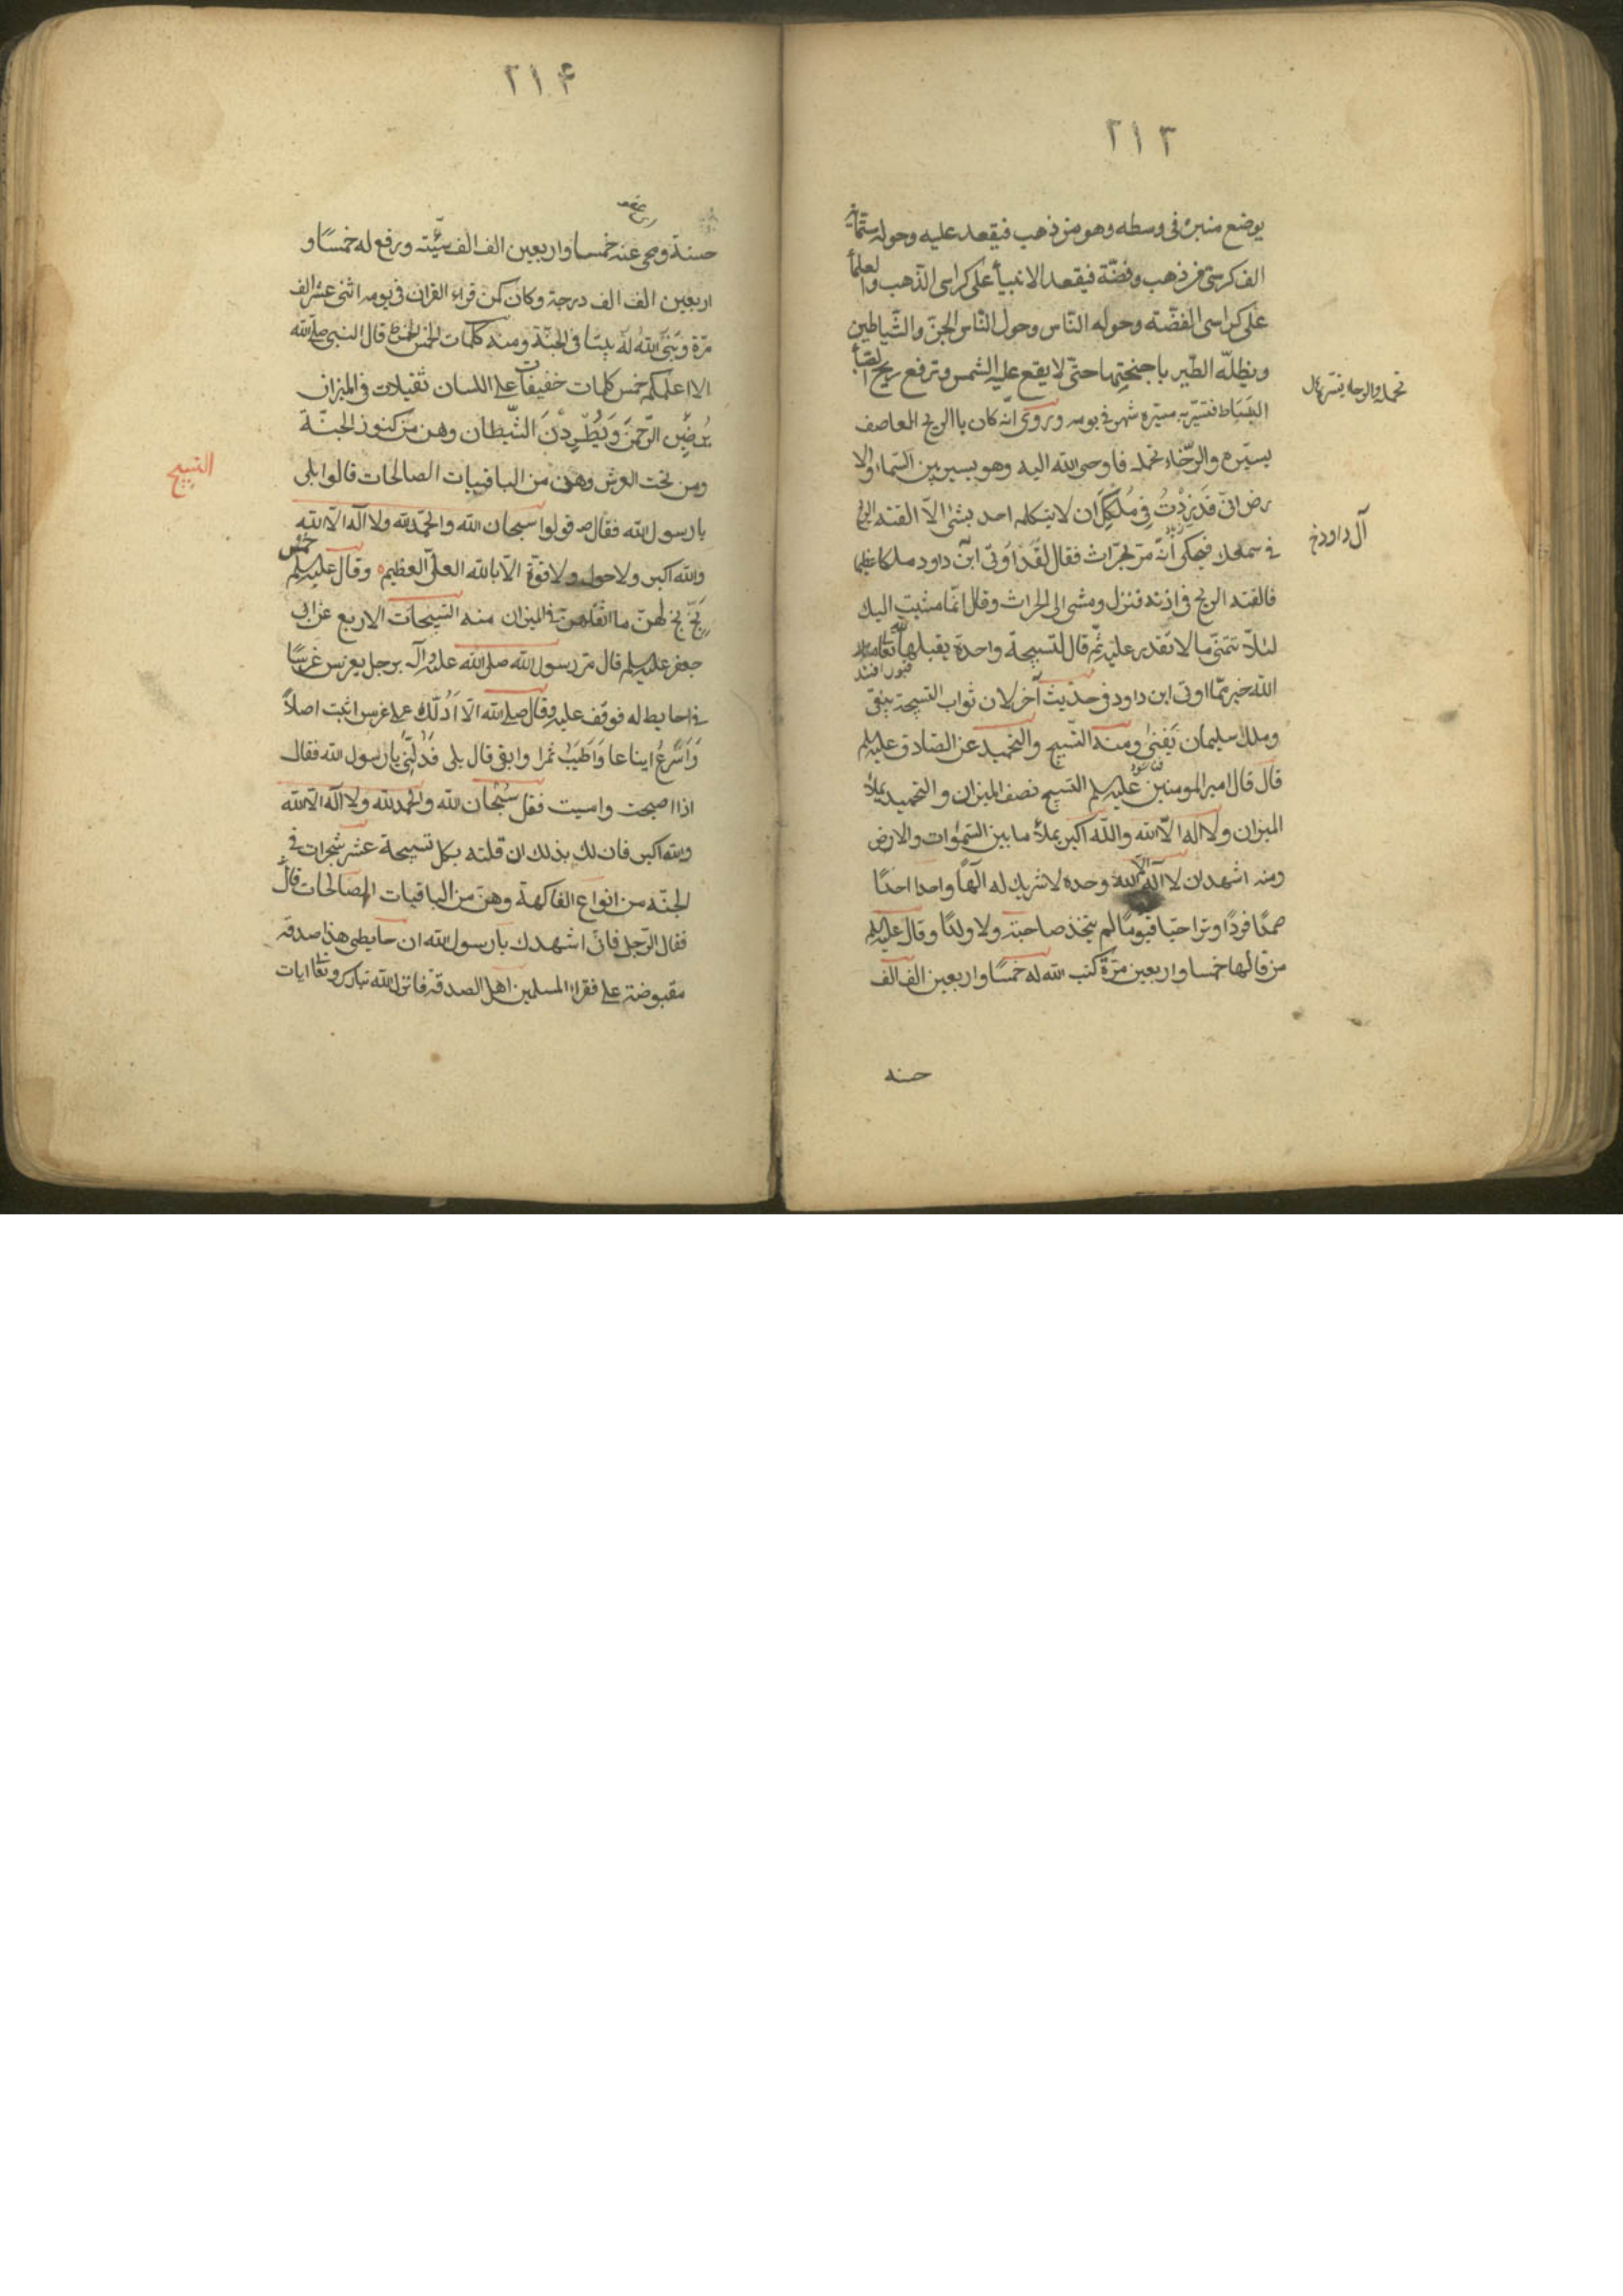 ٢١٣
يوضع منبره فى وسطه وهو من ذهب فيقعد عليه وحوله ستمائة
الف كرسى من ذهب وفضّة فيقعد الانبيأ على كراسى الذّهب والعلمأ
على كراسى الفضّة وحوله النّاس وحول النّاس الجنّ والشّياطين
ويظلّه الطّير باجنحتها حتّى لا يقع عليه الشمس وترفع ريح الصّبا
البَِسَاط فتسيّر به مسيرة شهر فى يومه وروى انّه كان يا الريح العاصف
يسيّره والرّخاء تحمله فاوحى الله اليه وهو يسير بين السّماء والا
رض انّى قد زِدْتُ فِى مُلْكِكَ ان لا يتكلم احد بشئ الّا القته الريح
فى سمعك فيحكى انّه مرّ بحرّاث فقال لَقَدْ اُوتى ابن داود ملكا عظيما
فالقته الريح فى اذنه فنزل ومشى الى الحراث وقال انّما مشيت اليك
لئلّا تتمنّى ما لا تقدر عليه ثمّ قال لتسبيحة واحدة يقبلها الله تعالى
الله خير ممّا اوتى ابن داود وفى حديث آخر لان ثواب التسبيحة يبقى
وملك سليمان يَفنىٰ ومنه التّسبيح والتحميد عن الصّادق عليه السلم
قال قال امير المومنين عليه السلم التسبيح نصف الميزان والتحميد يملأ
الميزان ولا اله الّا الله والله اكبر يملأ ما بين السّمٰوات والارض
ومنه اشهد ان لا اله الّا الله وحده لا شريك له الٰهاً واحدا احدًا
صمدًا فردًا وترا حيّا قيومًا لم يتّخذ صاحبة ولا ولدًا وقال عليه السلم
من قالها خمسا واربعين مرّة كتب الله له خمسًا واربعين الف الف
حسنه
آل داود خ
٢١۴
حسنة ومحى عنه خمسا واربعين الف الف سيّئة ورفع له خمسًا و
اربعين الف الف درجة وكان كمن قراء القران فى يومه اثنى عشر الف
مرّة وبَنَى اللهُ لَهُ بيتا فى الجنّة ومنه كلمات الخمس قال النبى صلى الله
الا اعلمكم خمس كلمات خفيفات على اللسان ثقيلات فى الميزان
يُرْضِيْنَ الرّحمنَ وَيُطْرِدْنَ الشّيطان وهن من كنوز الجنّة
ومن تحت العرش وهن من الباقيات الصالحات قالوا بلى
يا رسول الله فقال ص قولوا سبحان الله والحمد لله ولا اله الّا الله
والله اكبر ولا حول ولا قوّة الّا بالله العلىّ العظيم ه وقال عليه السلم خمس
بَخّ بخ لهنّ ما اثقلهنّ فى الميزان منه التسبيحات الاربع عن ابى
جعفر عليه السلم قال مرّ رسول الله صلى الله عليه وآله برجل يغرس غرسًا
فى حايط له فوقف عليه وقال صلى الله الَا اَدُلّك على غرس اثبت اصلاً
وَاَسْرَعَ ايناعا وَاَطْيَبَ ثمرا وابقى قال بلى فَدُلّنِى يا رسول الله فقال
اذا اصبحت وامسيت فقل سُبْحَان الله والحمد لله ولا اله الا الله
والله اكبر فان لك بذلك ان قلته بكل تسبيحة عشر شجرات فى
الجنّة من انواع الفاكهة وهن من الباقيات الصالحات قال
فقال الرّجل فانّى اشهدك يا رسول الله ان حايطى هذا صدقة
مقبوضة على فقراء المسلمين اهل الصدقة فانزل الله تبارك وتعالى ايات
التسبيح